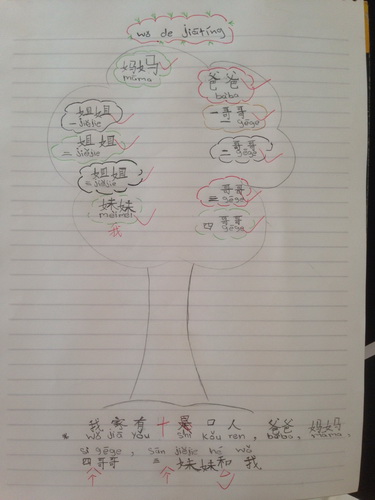 wǒ de jiātíng
妈妈
māma
爸爸
bàba
一姐姐
jiějie
一哥哥
gēge
二姐姐
jiějie
二哥哥
gēge
三姐姐
jiějie
三哥哥
gēge
妹妹
mèimei
四哥哥
gēge
我
我家有十口人,爸爸 妈妈
* wǒ jiā yǒu shí kǒu rén, bàba, māma,
sì gēge, sān jiějie hé wǒ
四哥哥 三 妹妹和我